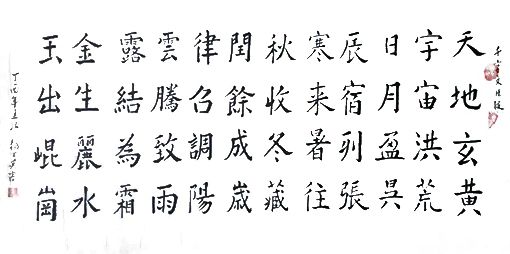 天地玄黄
宇宙洪荒
日月盈昃
辰宿列張
寒来暑往
秋收冬藏
閏餘成歲
律召調陽
雲騰致雨
露結為霜
金生麗水
玉出崐崗